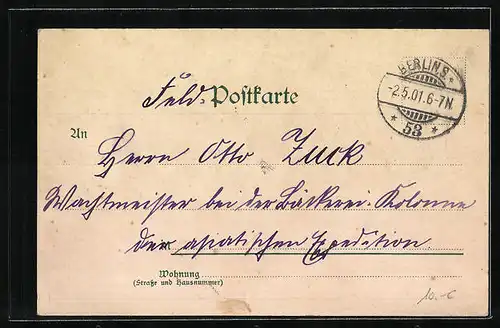 Feld-Postkarte
BERLIN S.
-2.5.01.6-7N
* 53 *
An
Herrn Otto Zuck
Wachtmeister bei der Bäckerei-Kolonne
der asiatischen Expedition.
Wohnung
(Straße und Hausnummer)
10.-6